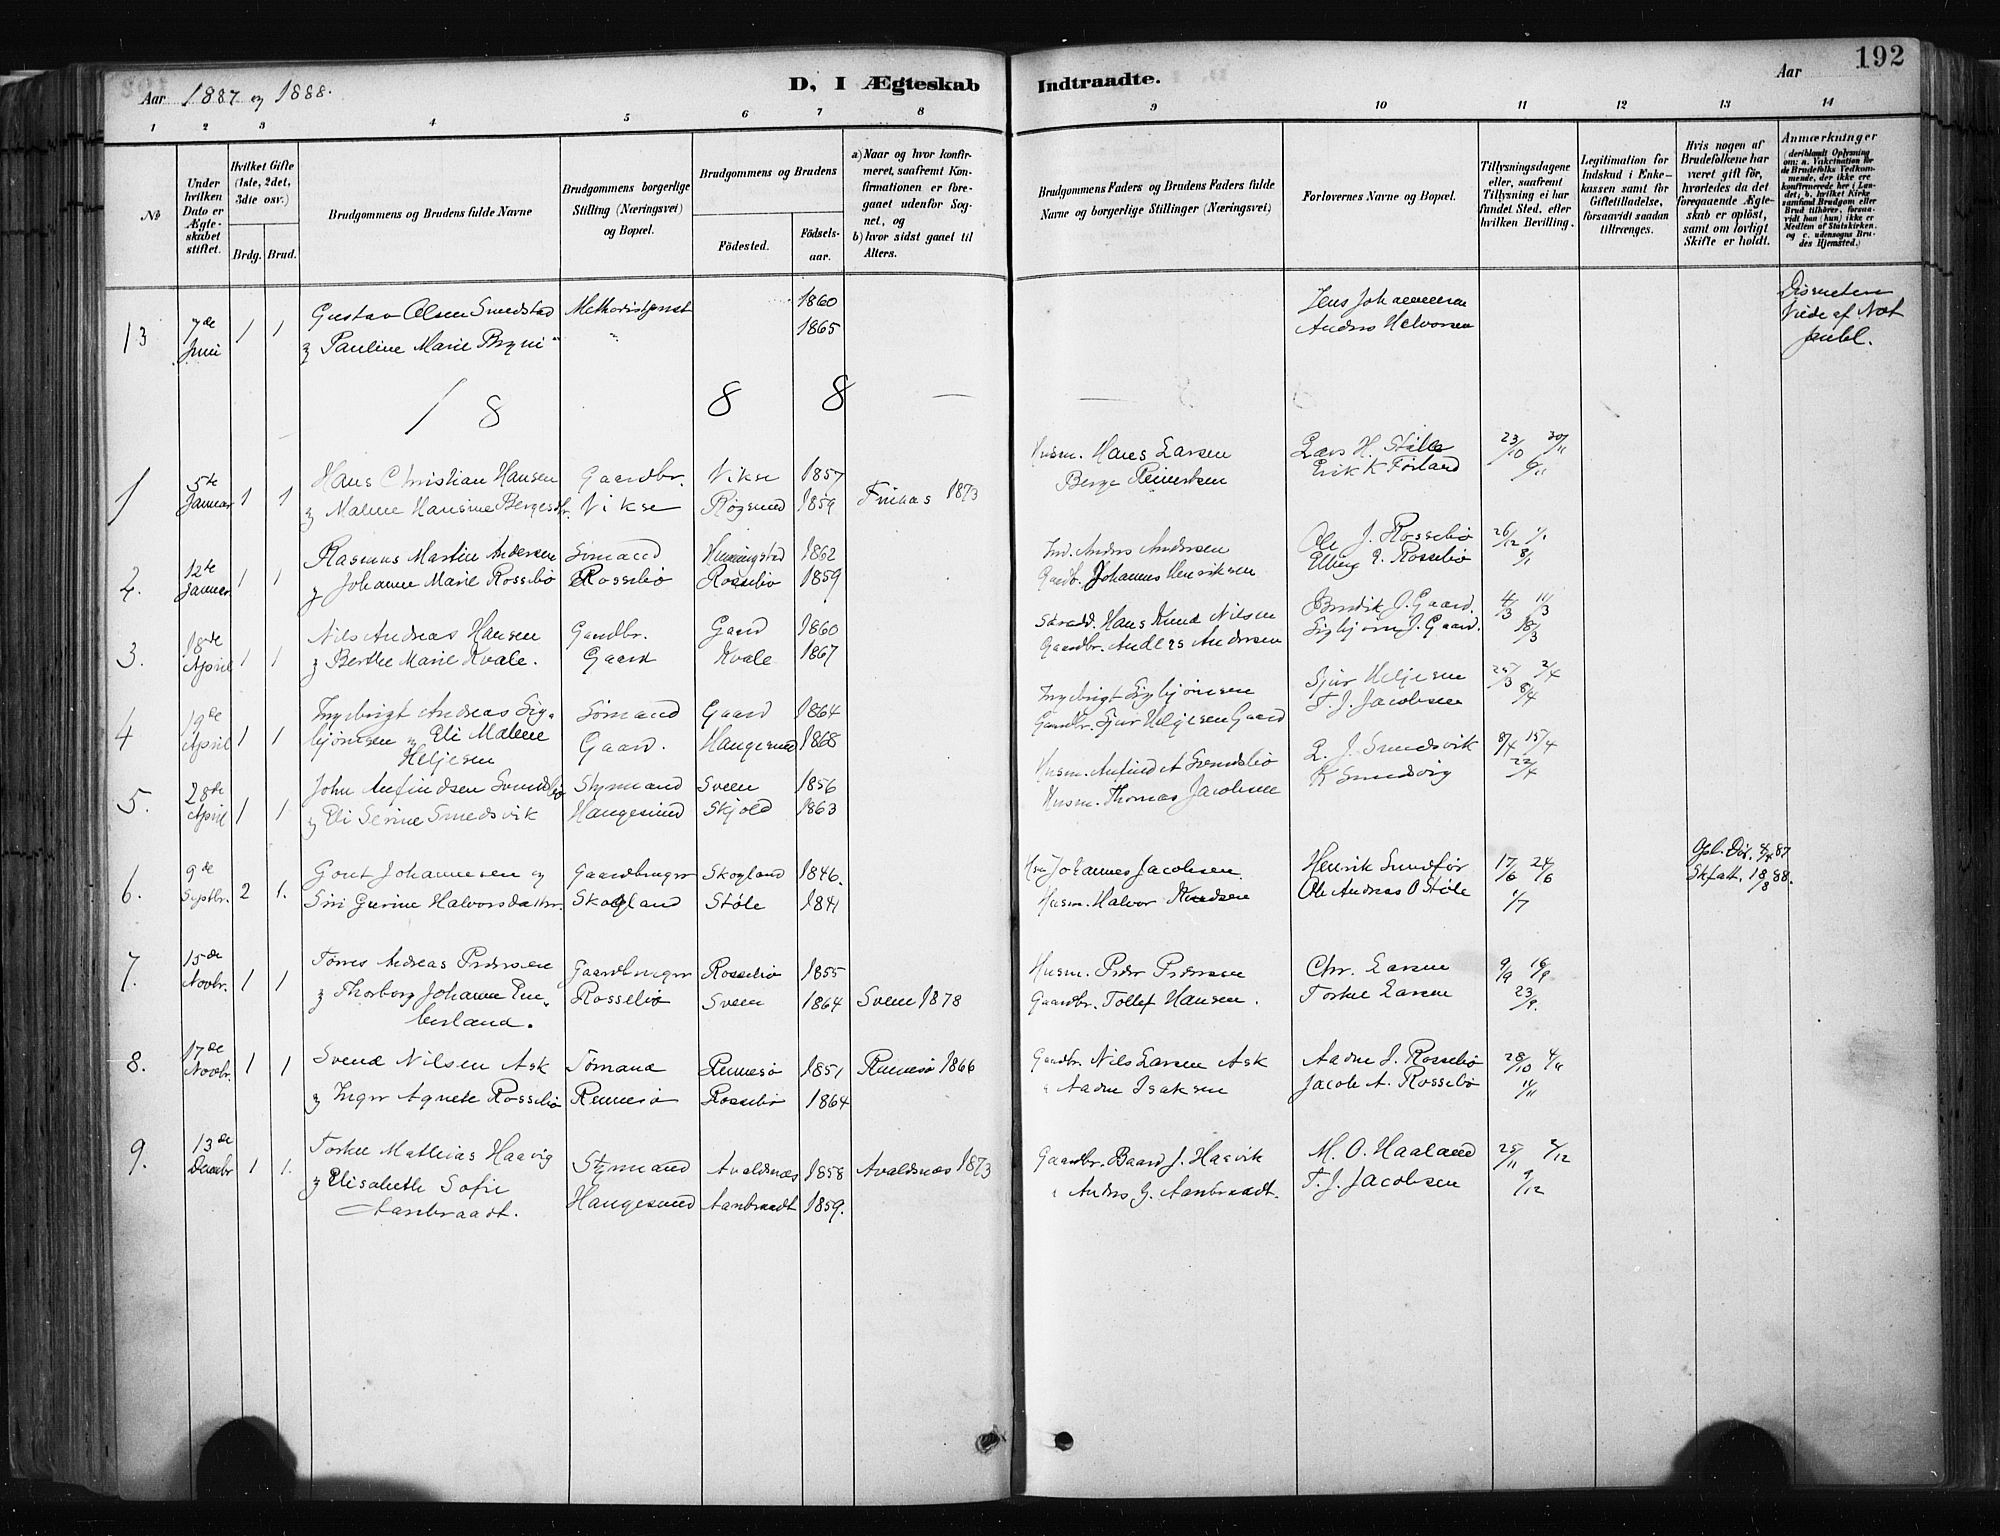 Aar 1887 og 1888.
D, I Ægteskab Indtraadte.
Aar
192
1 2 3 4 5 6 7 8 9 10 11 12 13 14
No
Under hvilken Dato er Ægteskabet stiftet.
Hvilket Gifte (1ste, 2det, 3die osv.)
Brdg. Brud.
Brudgommens og Brudens fulde Navne
Brudgommens borgerlige Stilling (Næringsvei) og Bopæl.
Brudgommens og Brudens
Födested.
Födselsaar.
a) Naar og hvor konfirmeret, saafremt Konfirmationen er foregaaet udenfor Sognet, og
b) hvor sidst gaaet til Alters.
Brudgommens Faders og Brudens Faders fulde Navne og borgerlige Stillinger (Næringsvei)
Forlovernes Navne og Bopæl.
Tillysningsdagene eller, saafremt Tillysning ei har fundet Sted, efter hvilken Bevilling.
Legitimation for Indskud i Enkekassen samt for Giftetilladelse, forsaavidt saadan tiltrænges.
Hvis nogen af Brudefolkene har været gift før, hvorledes da det foregaaende Ægteskab er oplöst, samt om lovligt Skifte er holdt.
Anmærkninger
(deriblandt Oplysning om: a. Vakcination for de Brudefolks Vedkommende, der ikke ere konfirmerede her i Landet, b. hvilket Kirkesamfund Brudgom eller Brud tilhörer, forsaavidt han (hun) ikke er Medlem af Statskirken, og c. udensogns Brudes Hjemsted.)
13 7de Juni 1 1 Gustav Olsen Smedstad Methodistprest 1860 Jens Johannesen
og Pauline Marie Bryni " 1865 Anders Halvorsen
Vede af Not
publ.
1 8 8 8
1 5te Januar 1 1 Hans Christian Hansen Gaardbr. Vikse 1857 Husm. Hans Larsen Lars H. Støle 23/10 30/11
og Malene Hansine Bergesdtr. Vikse Røgsund 1859 Finaas 1873 Berge Reinertsen Erik K Førland 6/11
2. 12te Januar 1 1 Rasmus Martin Andersen Sømand Hemmingstad 1862 Ind. Anders Andersen Ole J. Rossebø 26/12 1/1
og Johanne Marie Rossebø Rossebø Rossebø 1859 Gaardb. Johannes Henriksen Elling E. Rossebø 8/1
3. 18de April 1 1 Nils Andreas Hansen Gaardbr. Gaard 1860 Hans Knud Nilsen Bendik J. Gaard. 4/3 11/3
og Berthe Marie Kvale. Gaard Kvale 1867 Gaardbr. Anders Andersen Sigbjørn J. Gaard. 18/3
4 19de April 1 1 Ingebrigt Andreas Sig- Sømand Gaard 1864 Ingebrigt Sigbjørnsen Sjur Heljesen 25/3 2/4
bjørnsen og Eli Malene Gaard. Haugesund 1868 Gaardbr. Sjur Heljesen Gaard T. J. Jacobsen 8/4
Heljesen
5. 28de April 1 1. John Anfindsen Svendsbø Styrmand Sveen 1856 Husm. Anfind A Svendsbø L. J. Smedsvik 8/4 15/4
og Eli Serine Smedsvik Haugesund Skjold 1863 Husm. Thomas Jacobsen K Smedsvig 22/4
6. 9de Septbr. 2 1. Gout Johannesen og Gaardbruger Skogland 1846. Hm Johannes Jacobsen Henrik Sundfør 17/6 24/6
Siri Gurine Halvorsdatter. Skogland Støle 1841 Husm. Halvor Knudsen Ole Andreas O Støle 1/7 Skfatt. 18/8 88.
7. 15de Novbr. 1 1 Tørres Andreas Pedersen Gaardbruger Rossebø 1855 Husm. Peder Pedersen Chr. Larsen 9/9 16/9
og Thorborg Johanne Em- Rossebø Sveen 1864 Sveen 1878 Gaardbr. Tollef Hansen. Torkel Larsen 23/9.
berland.
8. 17de Novbr. 1 1 Svend Nilsen Ask Sømand Rennesø 1851 Rennesø 1866 Gaardbr. Nils Larsen Ask Aadne J. Rossebø 28/10 4/11
og Inger Agnete Rossebø Rennesø Rossebø 1864 " Aadne Isaksen Jacob A. Rossebø 11/11
9. 13de Decembr 1 1. Torkel Mathias Haavig Styrmand Avaldsnæs 1858 Avaldsnæs 1873 Gaardbr. Baard J. Haavik M. O. Haaland 25/11 2/12
og Elisabeth Sofie Haugesund Aanbraadt 1859. " Anders J. Aanbraadt. T. J. Jacobsen 9/12
Aanbraadt.